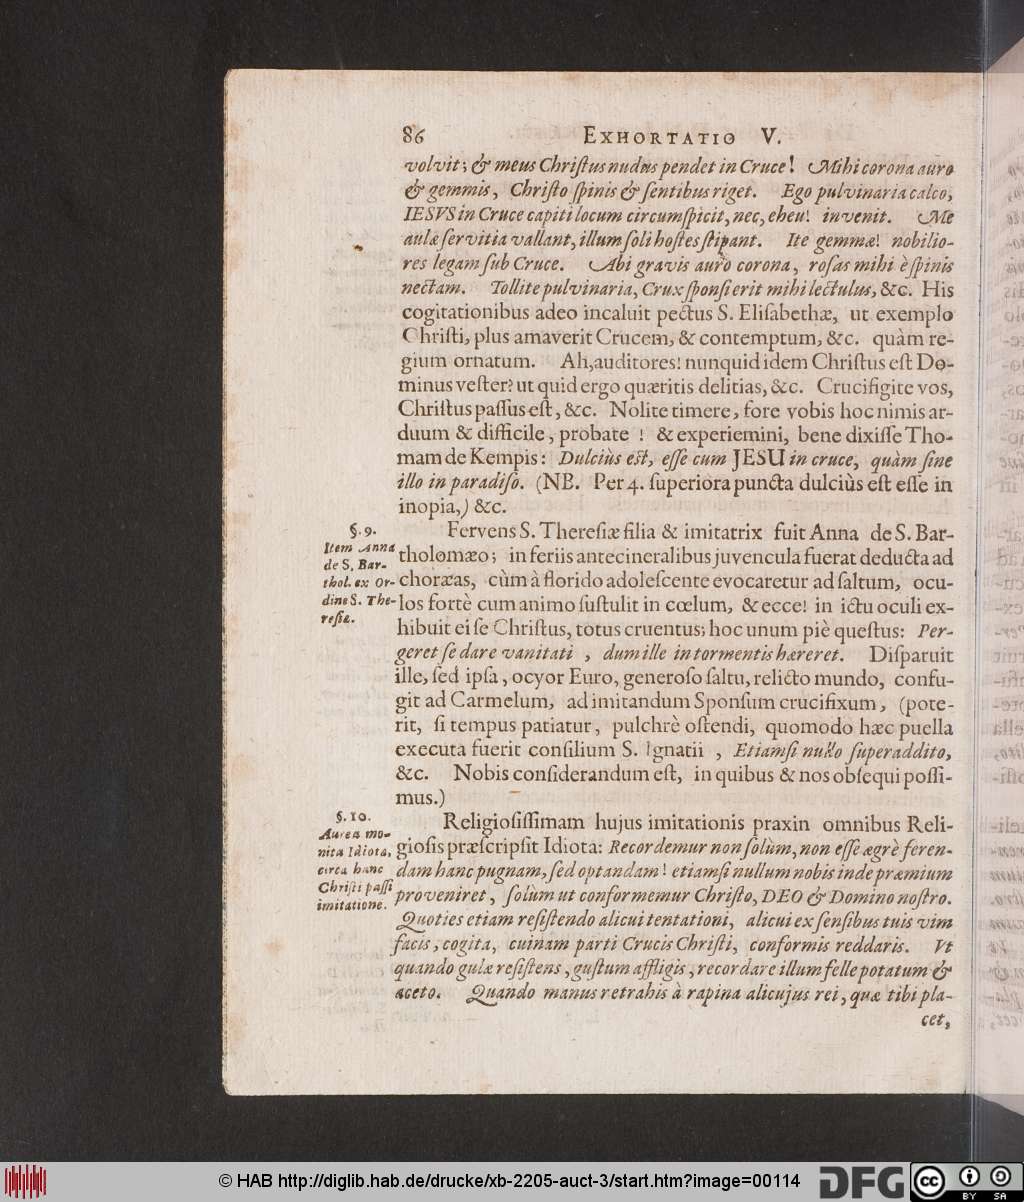 86 EXHORTATIO V.
volvit; & meus Chriſtus nudus pendet in Cruce! Mihi corona auro
& gemmis, Chriſto ſpinis & ſentibus riget. Ego pulvinaria calco,
IESVS in Cruce capiti locum circumſpicit, nec, eheu! invenit. Me
aulæ ſervitia vallant, illum ſoli hoſtes ſtipant. Ite gemmæ! nobilio-
res legam ſub Cruce. Abi gravis auro corona, roſas mihi è ſpinis
nectam. Tollite pulvinaria, Crux ſponſi erit mihi lectulus, &c. His
cogitationibus adeo incaluit pectus S. Eliſabethæ, ut exemplo
Chriſti, plus amaverit Crucem, & contemptum, &c. quàm re-
gium ornatum. Ah, auditores! nunquid idem Chriſtus eſt Do-
minus veſter? ut quid ergo quæritis delitias, &c. Crucifigite vos,
Chriſtus paſſus eſt, &c. Nolite timere, fore vobis hoc nimis ar-
duum & difficile, probate ! & experiemini, bene dixiſſe Tho-
mam de Kempis: Dulciùs eſt, eſſe cum JESU in cruce, quàm ſine
illo in paradiſo. (NB. Per 4. ſuperiora puncta dulciùs eſt eſſe in
inopia,) &c.
§. 9.
Item Anna
de S. Bar-
thol. ex Or-
dine S. The-
reſiæ.
Fervens S. Thereſiæ filia & imitatrix fuit Anna de S. Bar-
tholomæo; in feriis antecineralibus juvencula fuerat deducta ad
choræas, cùm à florido adoleſcente evocaretur ad ſaltum, ocu-
los fortè cum animo ſuſtulit in cœlum, & ecce! in ictu oculi ex-
hibuit ei ſe Chriſtus, totus cruentus; hoc unum piè queſtus: Per-
geret ſe dare vanitati , dum ille in tormentis hæreret. Diſparuit
ille, ſed ipſa, ocyor Euro, generoſo ſaltu, relicto mundo, confu-
git ad Carmelum, ad imitandum Sponſum crucifixum, (pote-
rit, ſi tempus patiatur, pulchrè oſtendi, quomodo hæc puella
executa fuerit conſilium S. Ignatii , Etiamſi nullo ſuperaddito,
&c. Nobis conſiderandum eſt, in quibus & nos obſequi poſſi-
mus.)
§. 10.
Aurea mo-
nita Idiotæ,
circa hanc
Chriſti paſſi
imitatione.
Religioſiſſimam hujus imitationis praxin omnibus Reli-
gioſis præſcripſit Idiota: Recordemur non ſolùm, non eſſe ægrè feren-
dam hanc pugnam, ſed optandam! etiamſi nullum nobis inde præmium
proveniret, ſolùm ut conformemur Chriſto, DEO & Domino noſtro.
Quoties etiam reſiſtendo alicui tentationi, alicui ex ſenſibus tuis vim
facis, cogita, cuinam parti Crucis Chriſti, conformis reddaris. Vt
quando gulæ reſiſtens, guſtum affligis, recordare illum felle potatum &
aceto. Quando manus retrahis à rapina alicujus rei, quæ tibi pla-
cet,
© HAB http://diglib.hab.de/drucke/xb-2205-auct-3/start.htm?image=00114
DFG
cc
BY SA